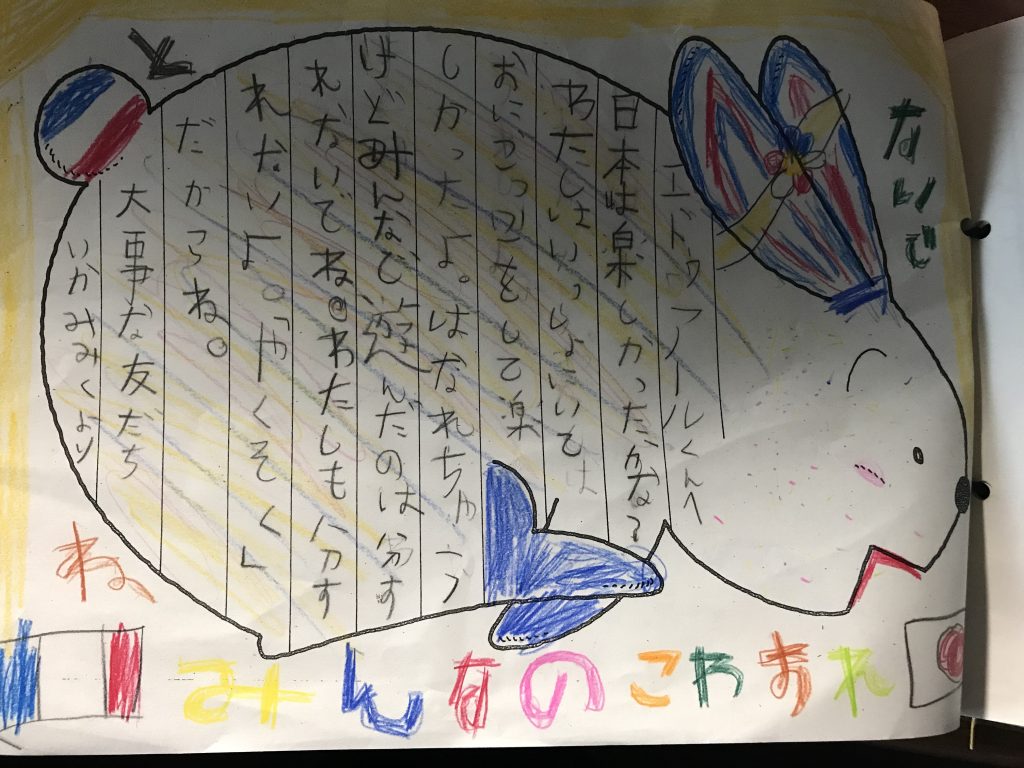 エドゥアールくんへ
日本は楽しかったかな？
わたしはいっしょにいて
おにごっこをして楽
しかったよ。はなれちゃう
けどみんなで遊んだのは分す
れないでね。わたしも分す
れないよ。「やくそく」
だからね。
大事な友だち
いかみみくより
みんなのこわすれ
ないで
ね